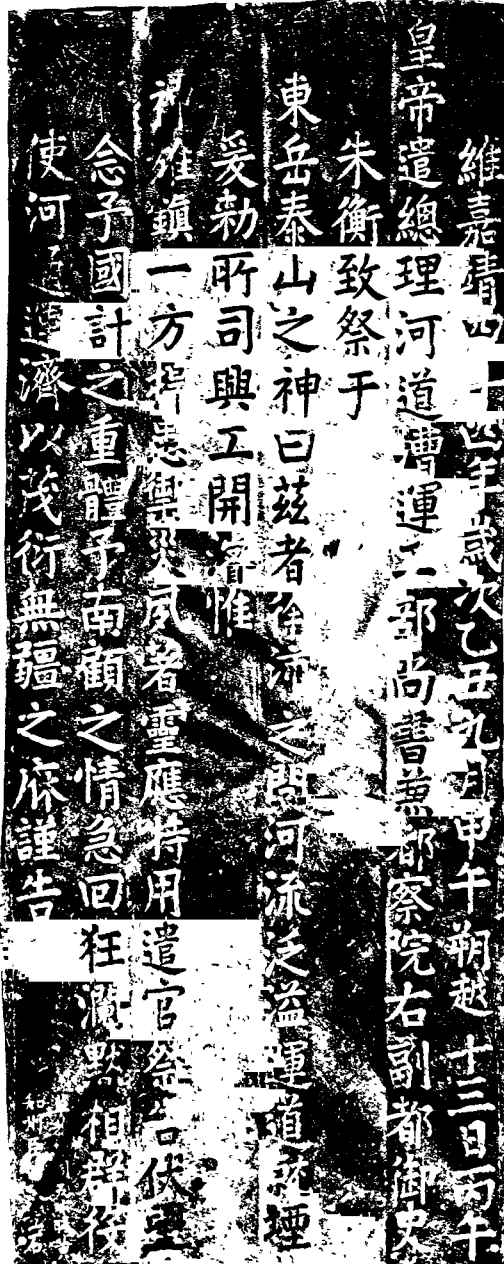 維嘉靖四十四年歲次乙丑九月甲午朔越十三日丙午
皇帝遣總理河道漕運工部尚書兼都察院右副都御史
朱衡致祭于
東岳泰山之神曰茲者徐沛之間河流泛溢運道就堙
爰勅所司興工開濬惟
神雄鎮一方捍患禦災夙著靈應特用遣官祭告伏望
念予國計之重體予南顧之情急回狂瀾默相群役
使河通濟以茂衍無疆之庥謹告